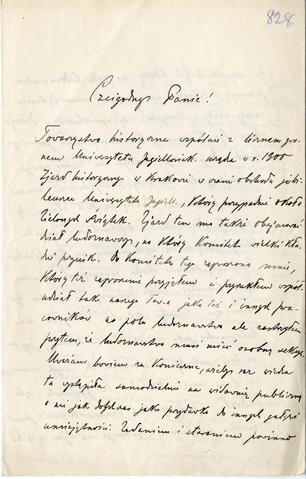 828.
Czcigodny Panie!
Towarzystwo historyczne wspólnie z licznem gro-
nem Uniwersytetu Jagiellońsk. urządza w r. 1900
Zjazd historyczny w Krakowie w czasie obchodu jubi-
leuszu Uniwersytetu Jagiell., który przypadnie około
Zielonych Świątek. Zjazd ten ma także obejmować
dział ludoznawczy, na który Komitet wielki kła-
dzie przycisk. Do Komitetu tego zaproszono mnie,
który też zaproszenie przyjąłem z punktem współ-
udział tak nasze Towa. jako też i innych pra-
cowników na polu ludoznawstwa ale zastrzegłem
przytem, że ludoznawstwo musi mieć osobną sekcyę.
Uważam bowiem za konieczne, ażeby raz wiedza
ta wystąpiła samodzielnie na widownię publiczną
a nie jak dotychczas jako przydatek do innych gałęzi
umiejętności. Zadaniem i staraniem powinno